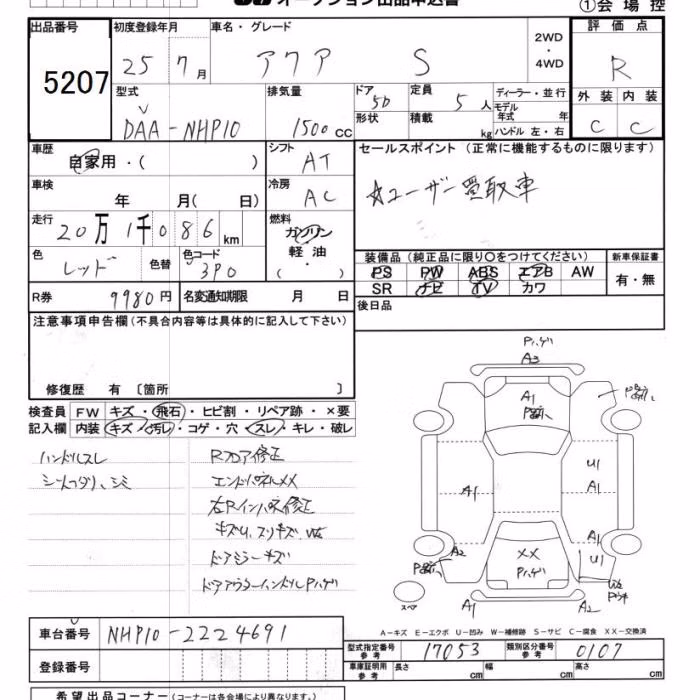 オークション出品申込書
①会場控
出品番号 初度登録年月 車名・グレード 2WD・4WD 評価点
5207 25 7月 アクア S R
型式 排気量 ドア 5D 定員 5人 ディーラー・並行 外装 内装
DAA-NHP10 1500cc 形状 積載 kg モデル年式 年 C C
ハンドル 左・右
車歴 自家用・( ) シフト AT セールスポイント(正常に機能するものに限ります)
車検 年 月( 日) 冷房 AC ☆ユーザー買取車
走行 20万1千086km 燃料 ガソリン
軽油
( ・ )
色 レッド 色替 色コード 3P0 装備品(純正品に限り〇をつけてください) 新車保証書
PS PW ABS エアB AW 有・無
SR ナビ TV カワ
R券 9980円 名変通知期限 月 日 後日品
注意事項申告欄(不具合内容等は具体的に記入して下さい)
修復歴 有 〔箇所 〕
検査員 FW キズ・飛石・ヒビ割・リペア跡・×要
記入欄 内装 キズ・汚レ・コゲ・穴・スレ・キレ・破レ
ハンドルスレ Rフロア修正
エンドパネルXX
右Rインパネ修正
ドアミラーキズ
ドアアウターハンドルPハゲ
Pハゲ
A3
A1
U1
A1
A1
A1
A2
XX
Pハゲ
U1
スペア
A1
A2
A-キズ E-エクボ U-凹み W-補修跡 S-サビ C-腐食 XX-交換済
車台番号 NHP10-2224691
登録番号
型式指定番号 参考 17053 類別区分番号 参考 0107
車庫証明用 参考 長さ cm 幅 cm 高さ cm
希望出品コーナー(コーナーは各会場により異なります。)